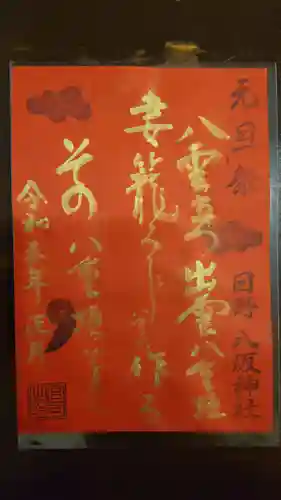 元旦祭 日野八坂神社
八雲立つ 出雲八重垣
妻籠みに 八重垣作る
その 八重垣を
令和 年 正月